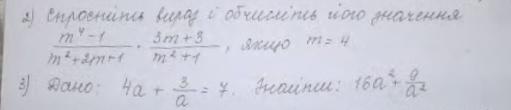 2) Спростіть вираз і обчисліть його значення
m⁴-1/m²+2m+1 · 3m+3/m²+1, якщо m=4
3) Дано: 4a + 3/a = 7. Знайти: 16a² + 9/a²